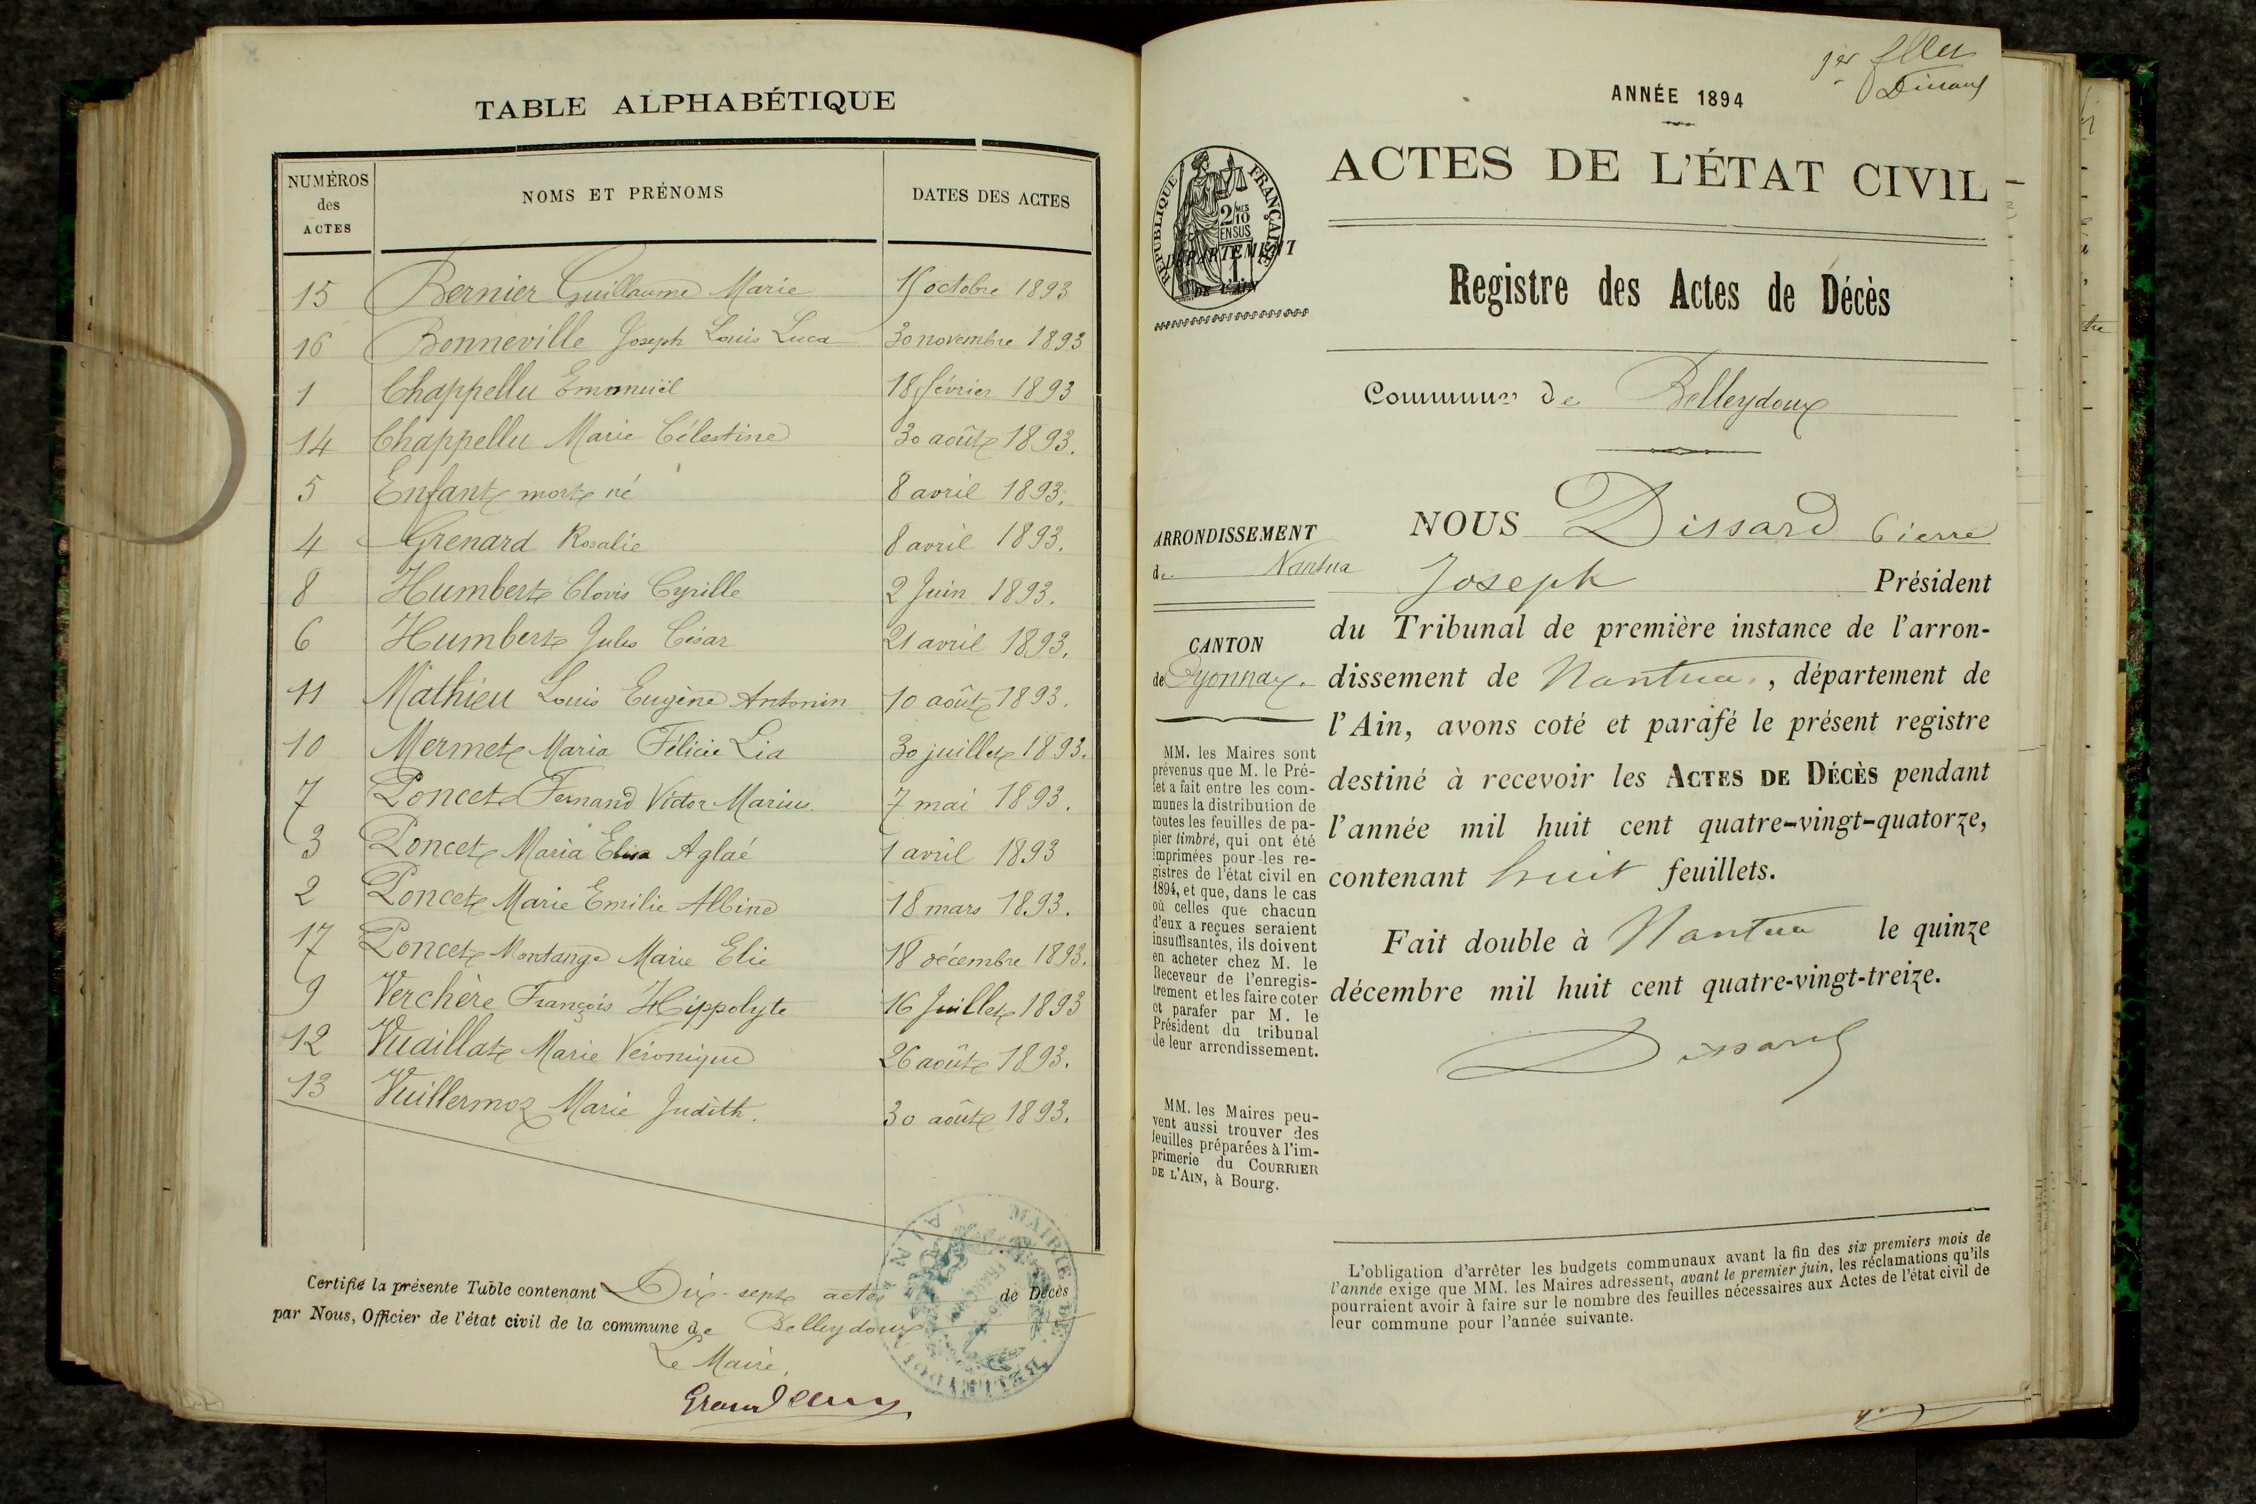 TABLE ALPHABÉTIQUE
NUMÉROS des ACTES
NOMS ET PRÉNOMS
DATES DES ACTES
15 Bernier Guillaume Marie octobre 1893
16 Bonneville Joseph Louis Luca 30 novembre 1893
1 Chappellu Emmnuël 18 février 1893
14 Chappellu Marie Célestine 30 août 1893.
5 Enfant mort né 8 avril 1893.
4 Grenard Rosalie 8 avril 1893.
8 Humbert Clovis Cyrille 2 Juin 1893.
6 Humbert Jules César 21 avril 1893.
11 Mathieu Louis Eugène Antonin 10 août 1893.
10 Mermet Maria Félicie Lia 30 juillet 1893.
7 Poncet Fernand Victor Marius 7 mai 1893.
3 Poncet Maria Elisa Aglaé 1 avril 1893
2 Poncet Marie Emilie Albine 18 mars 1893.
17 Poncet Montange Marie Elie 18 décembre 1893.
9 Verchère François Hippolyte 16 Juillet 1893
12 Vuaillat Marie Véronique 26 août 1893.
13 Vuillermoz Marie Judith. 30 août 1893.
Certifié la présente Table contenant Dix-sept actes de Décès
par Nous, Officier de l'état civil de la commune de Belleydoux
Le Maire,
MAIRIE DE BELLEYDOUX AIN
ANNÉE 1894
ACTES DE L'ÉTAT CIVIL
RÉPUBLIQUE FRANÇAISE
2/10 EN SUS
DÉPARTEMENT
DE L'AIN
Registre des Actes de Décès
Commune de Belleydoux
ARRONDISSEMENT
de Nantua
CANTON
de Oyonnax.
MM. les Maires sont
prévenus que M. le Pré-
fet a fait entre les com-
munes la distribution de
toutes les feuilles de pa-
pier timbré, qui ont été
imprimées pour les re-
gistres de l'état civil en
1894, et que, dans le cas
où celles que chacun
d'eux a reçues seraient
insuffisantes, ils doivent
en acheter chez M. le
Receveur de l'enregis-
trement et les faire coter
et parafer par M. le
Président du tribunal
de leur arrondissement.
MM. les Maires peu-
vent aussi trouver des
feuilles préparées à l'im-
primerie du COURRIER
DE L'AIN, à Bourg.
NOUS Dissard Pierre
Joseph Président
du Tribunal de première instance de l'arron-
dissement de Nantua, département de
l'Ain, avons coté et parafé le présent registre
destiné à recevoir les ACTES DE DÉCÈS pendant
l'année mil huit cent quatre-vingt-quatorze,
contenant huit feuillets.
Fait double à Nantua le quinze
décembre mil huit cent quatre-vingt-treize.
Dissard
L'obligation d'arrêter les budgets communaux avant la fin des six premiers mois de
l'année exige que MM. les Maires adressent, avant le premier juin, les réclamations qu'ils
pourraient avoir à faire sur le nombre des feuilles nécessaires aux Actes de l'état civil de
leur commune pour l'année suivante.